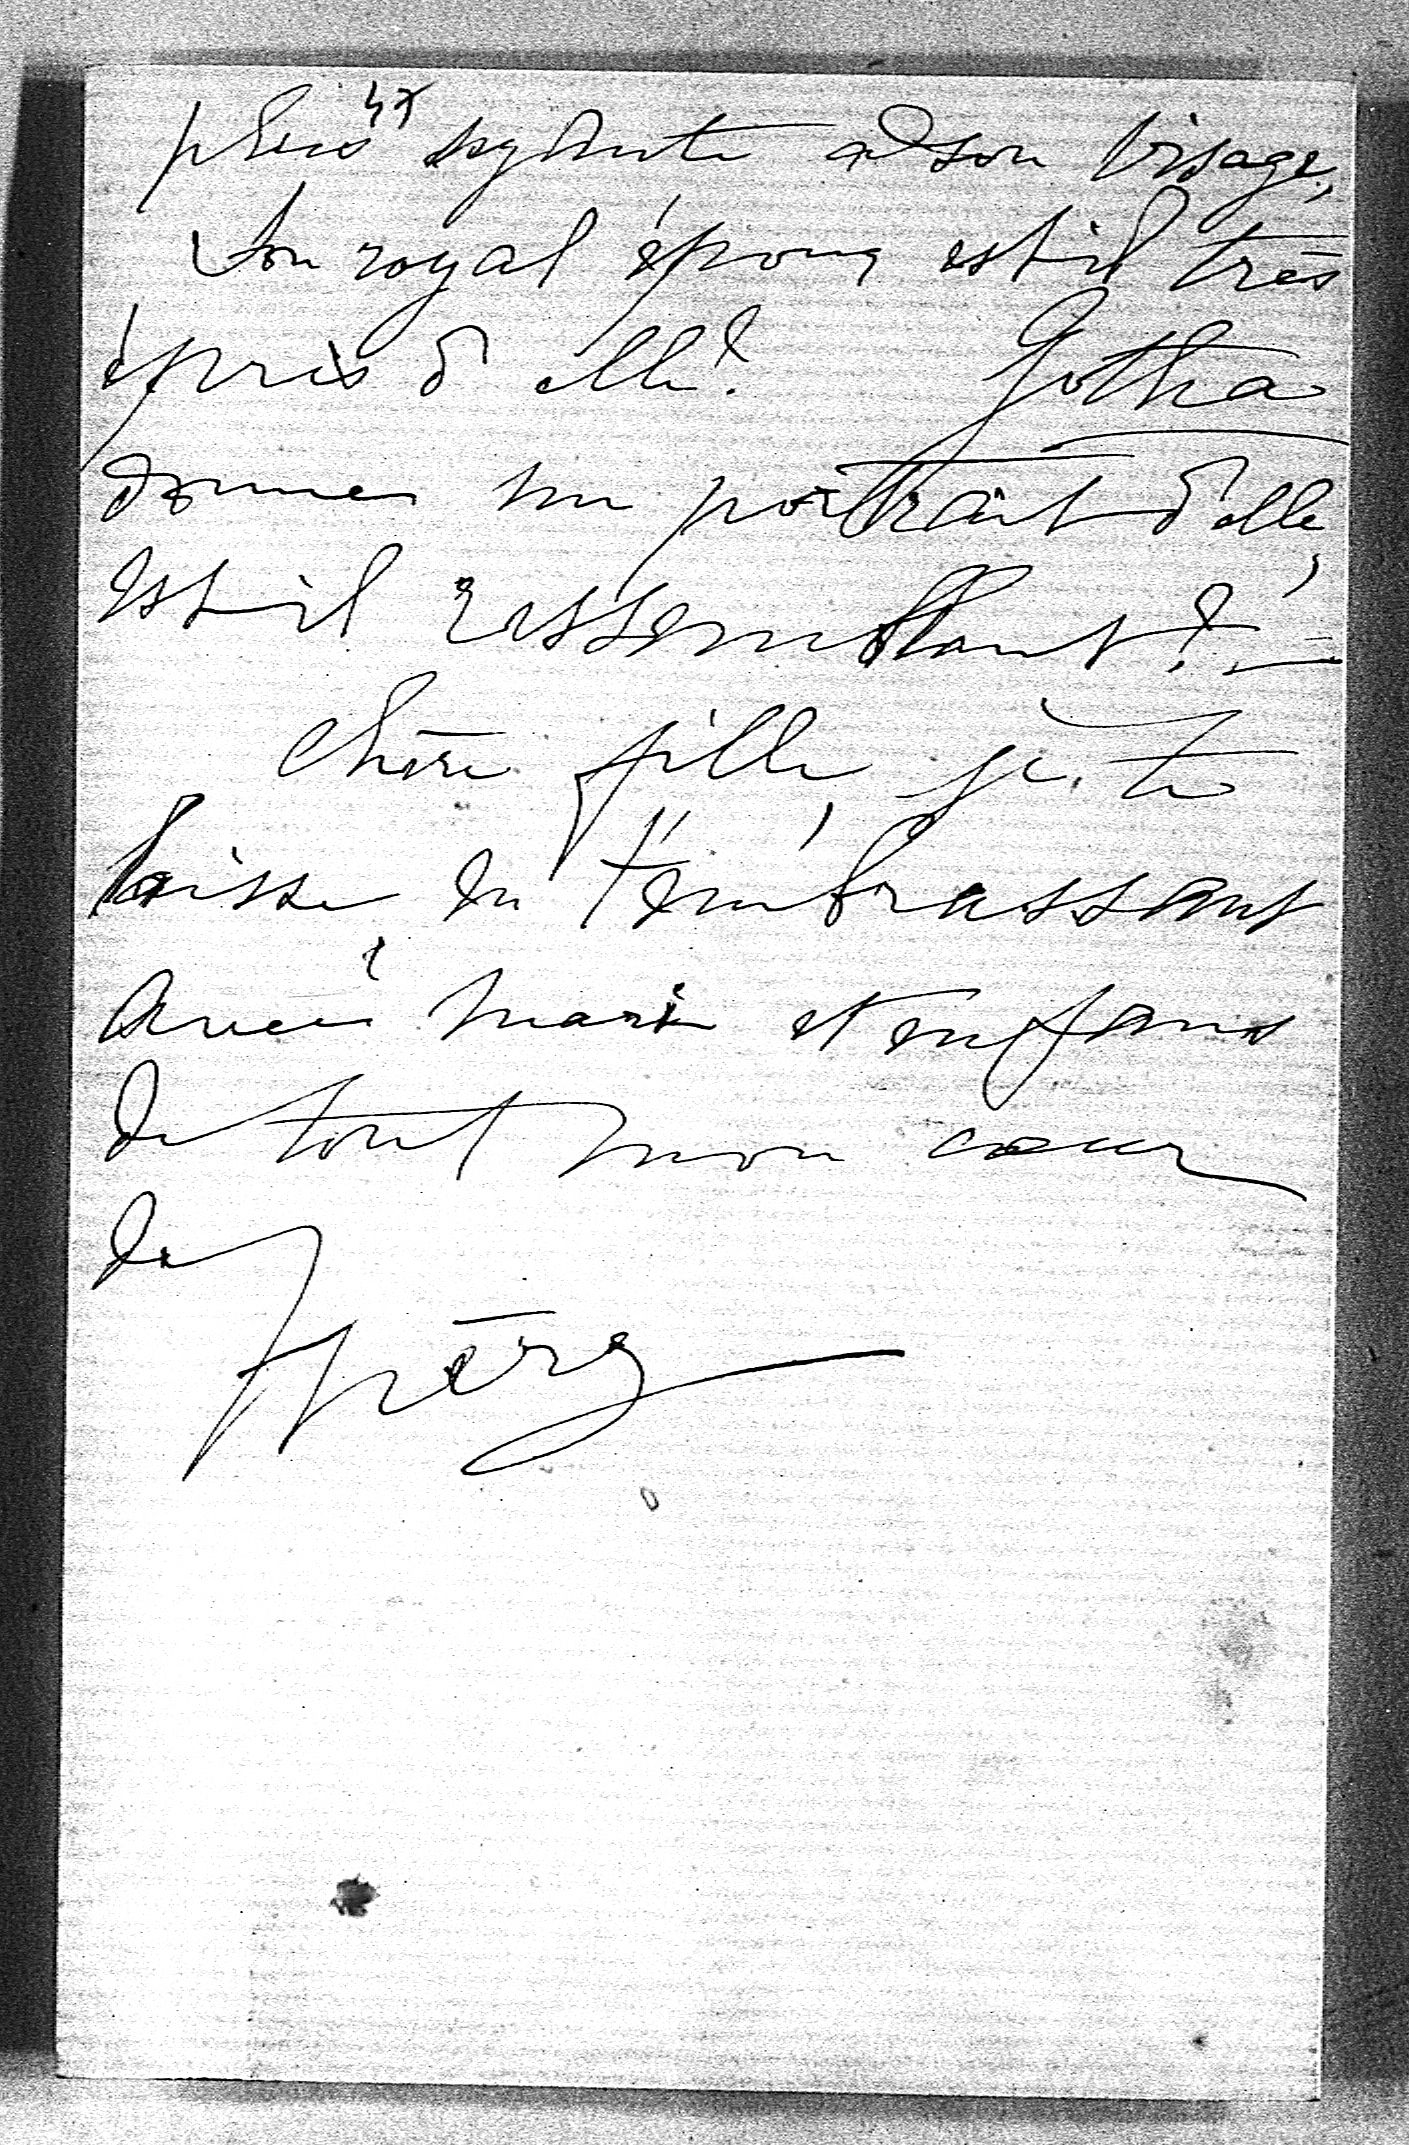 son visage,
Son royal époux est il très
épris d'elle? Gotha
donne un portrait d'elle,
est il ressemblant? =
Chère fille, je te
laisse en t'embrassant
avec mari et enfans
de tout mon cœur
de
Père